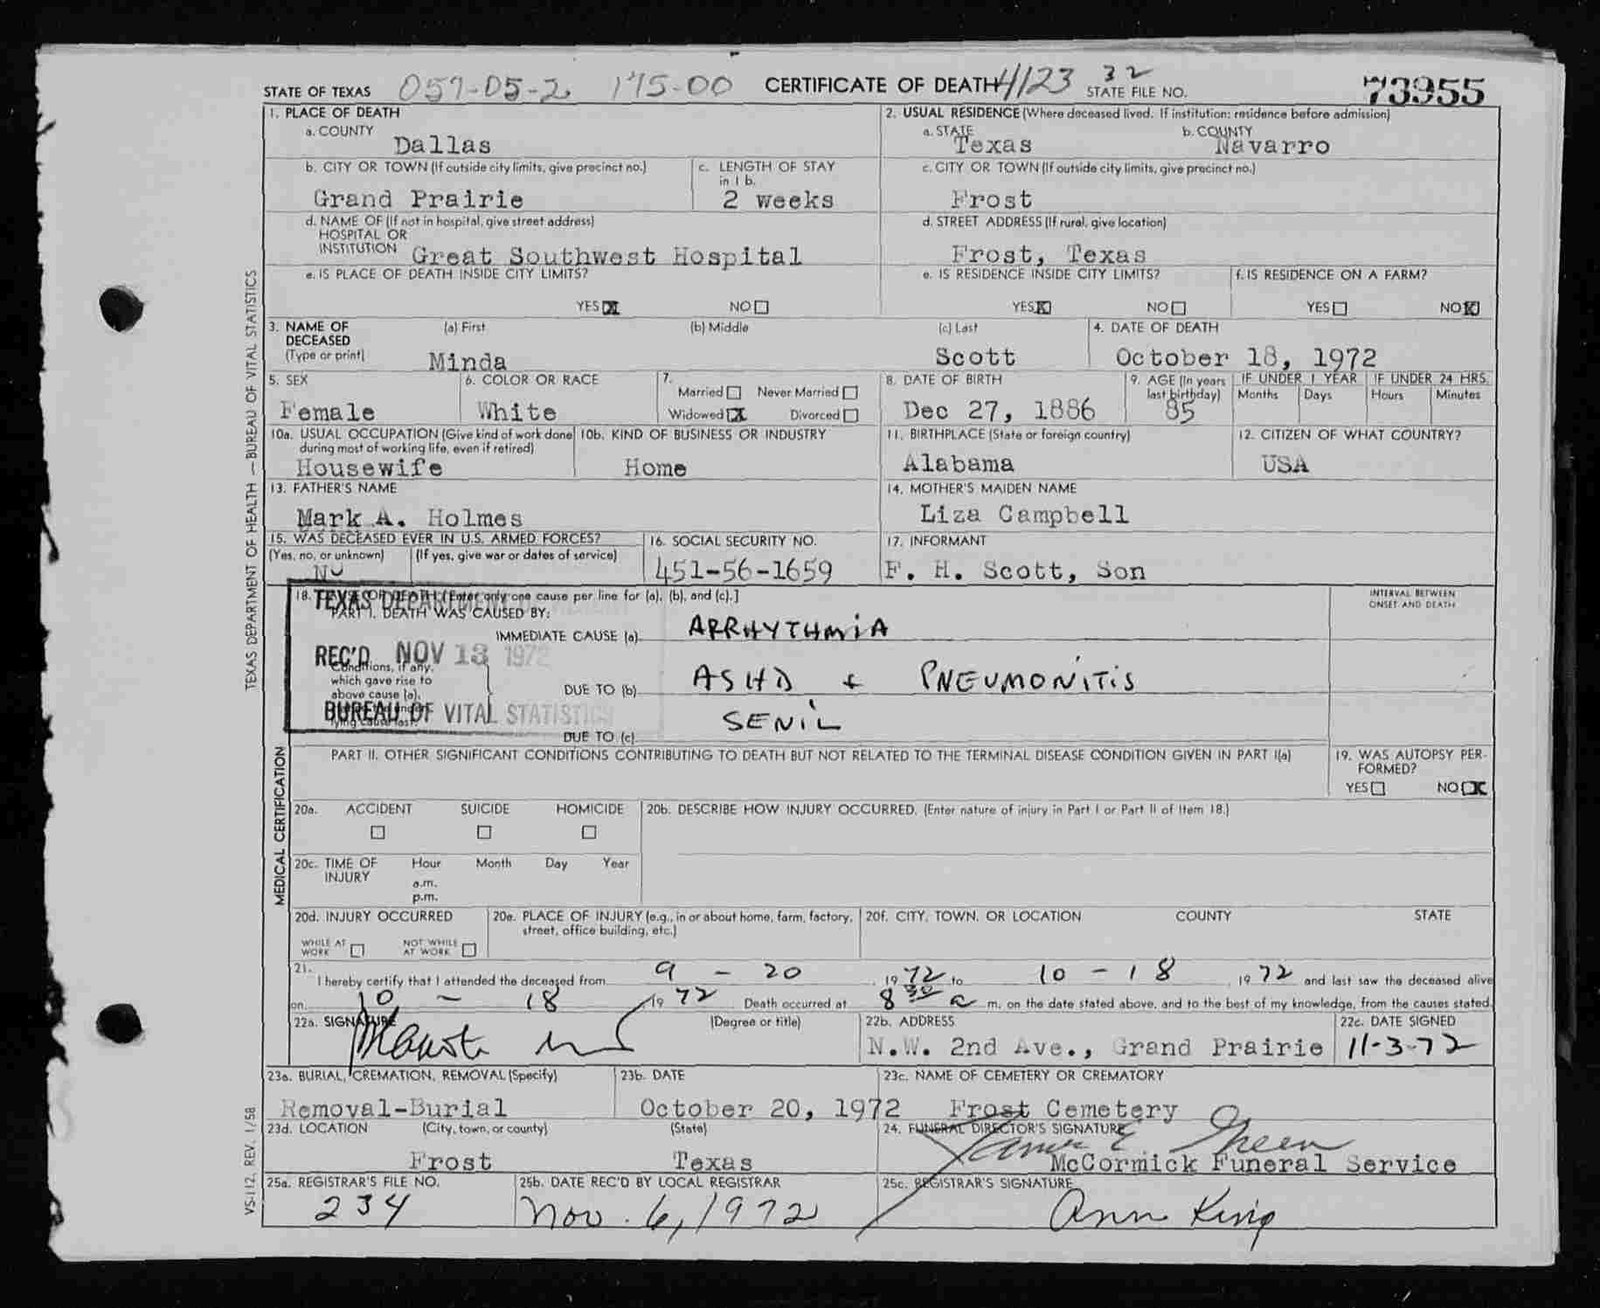 STATE OF TEXAS 057-05-2 175-00 CERTIFICATE OF DEATH 4123 32 STATE FILE NO. 73955
1. PLACE OF DEATH
a. COUNTY
Dallas
2. USUAL RESIDENCE (Where deceased lived. If institution: residence before admission)
a. STATE b. COUNTY
Texas Navarro
b. CITY OR TOWN (If outside city limits, give precinct no.)
Grand Prairie
c. LENGTH OF STAY
in 1 b.
2 weeks
c. CITY OR TOWN (If outside city limits, give precinct no.)
Frost
d. NAME OF (If not in hospital, give street address)
HOSPITAL OR
INSTITUTION Great Southwest Hospital
d. STREET ADDRESS (If rural, give location)
Frost, Texas
e. IS PLACE OF DEATH INSIDE CITY LIMITS?
YES X NO
e. IS RESIDENCE INSIDE CITY LIMITS?
YES X NO
f. IS RESIDENCE ON A FARM?
YES NO X
3. NAME OF (a) First (b) Middle (c) Last
DECEASED
(Type or print) Minda Scott
4. DATE OF DEATH
October 18, 1972
5. SEX
Female
6. COLOR OR RACE
White
7.
Married Never Married
Widowed X Divorced
8. DATE OF BIRTH
Dec 27, 1886
9. AGE (In years
last birthday)
85
IF UNDER 1 YEAR IF UNDER 24 HRS.
Months Days Hours Minutes
10a. USUAL OCCUPATION (Give kind of work done
during most of working life, even if retired)
Housewife
10b. KIND OF BUSINESS OR INDUSTRY
Home
11. BIRTHPLACE (State or foreign country)
Alabama
12. CITIZEN OF WHAT COUNTRY?
USA
13. FATHER'S NAME
Mark A. Holmes
14. MOTHER'S MAIDEN NAME
Liza Campbell
15. WAS DECEASED EVER IN U.S. ARMED FORCES?
(Yes, no, or unknown) (If yes, give war or dates of service)
No
16. SOCIAL SECURITY NO.
451-56-1659
17. INFORMANT
F. H. Scott, Son
18. CAUSE OF DEATH [Enter only one cause per line for (a), (b), and (c).]
PART I. DEATH WAS CAUSED BY:
INTERVAL BETWEEN
ONSET AND DEATH
TEXAS DEPARTMENT
REC'D NOV 13 1972
BUREAU OF VITAL STATISTICS
IMMEDIATE CAUSE (a) ARRHYTHMIA
Conditions, if any,
which gave rise to
above cause (a),
DUE TO (b) ASHD + PNEUMONITIS
lying cause last.
DUE TO (c) SENIL
PART II. OTHER SIGNIFICANT CONDITIONS CONTRIBUTING TO DEATH BUT NOT RELATED TO THE TERMINAL DISEASE CONDITION GIVEN IN PART I(a)
19. WAS AUTOPSY PER-
FORMED?
YES NO X
20a. ACCIDENT SUICIDE HOMICIDE
20b. DESCRIBE HOW INJURY OCCURRED. (Enter nature of injury in Part I or Part II of Item 18.)
20c. TIME OF Hour Month Day Year
INJURY
a.m.
p.m.
20d. INJURY OCCURRED
WHILE AT NOT WHILE
WORK AT WORK
20e. PLACE OF INJURY (e.g., in or about home, farm, factory,
street, office building, etc.)
20f. CITY, TOWN, OR LOCATION COUNTY STATE
21.
I hereby certify that I attended the deceased from 9 - 20, 1972 to 10 - 18, 1972 and last saw the deceased alive
on 10 - 18, 1972. Death occurred at 8 30 a m. on the date stated above, and to the best of my knowledge, from the causes stated.
22a. SIGNATURE (Degree or title)
22b. ADDRESS
N.W. 2nd Ave., Grand Prairie
22c. DATE SIGNED
11-3-72
23a. BURIAL, CREMATION, REMOVAL (Specify)
Removal-Burial
23b. DATE
October 20, 1972
23c. NAME OF CEMETERY OR CREMATORY
Frost Cemetery
23d. LOCATION (City, town, or county) (State)
Frost Texas
24. FUNERAL DIRECTOR'S SIGNATURE
James E Green
McCormick Funeral Service
25a. REGISTRAR'S FILE NO.
234
25b. DATE REC'D BY LOCAL REGISTRAR
Nov. 6, 1972
25c. REGISTRAR'S SIGNATURE
Ann King
TEXAS DEPARTMENT OF HEALTH — BUREAU OF VITAL STATISTICS
MEDICAL CERTIFICATION
VS-112, REV. 1/58